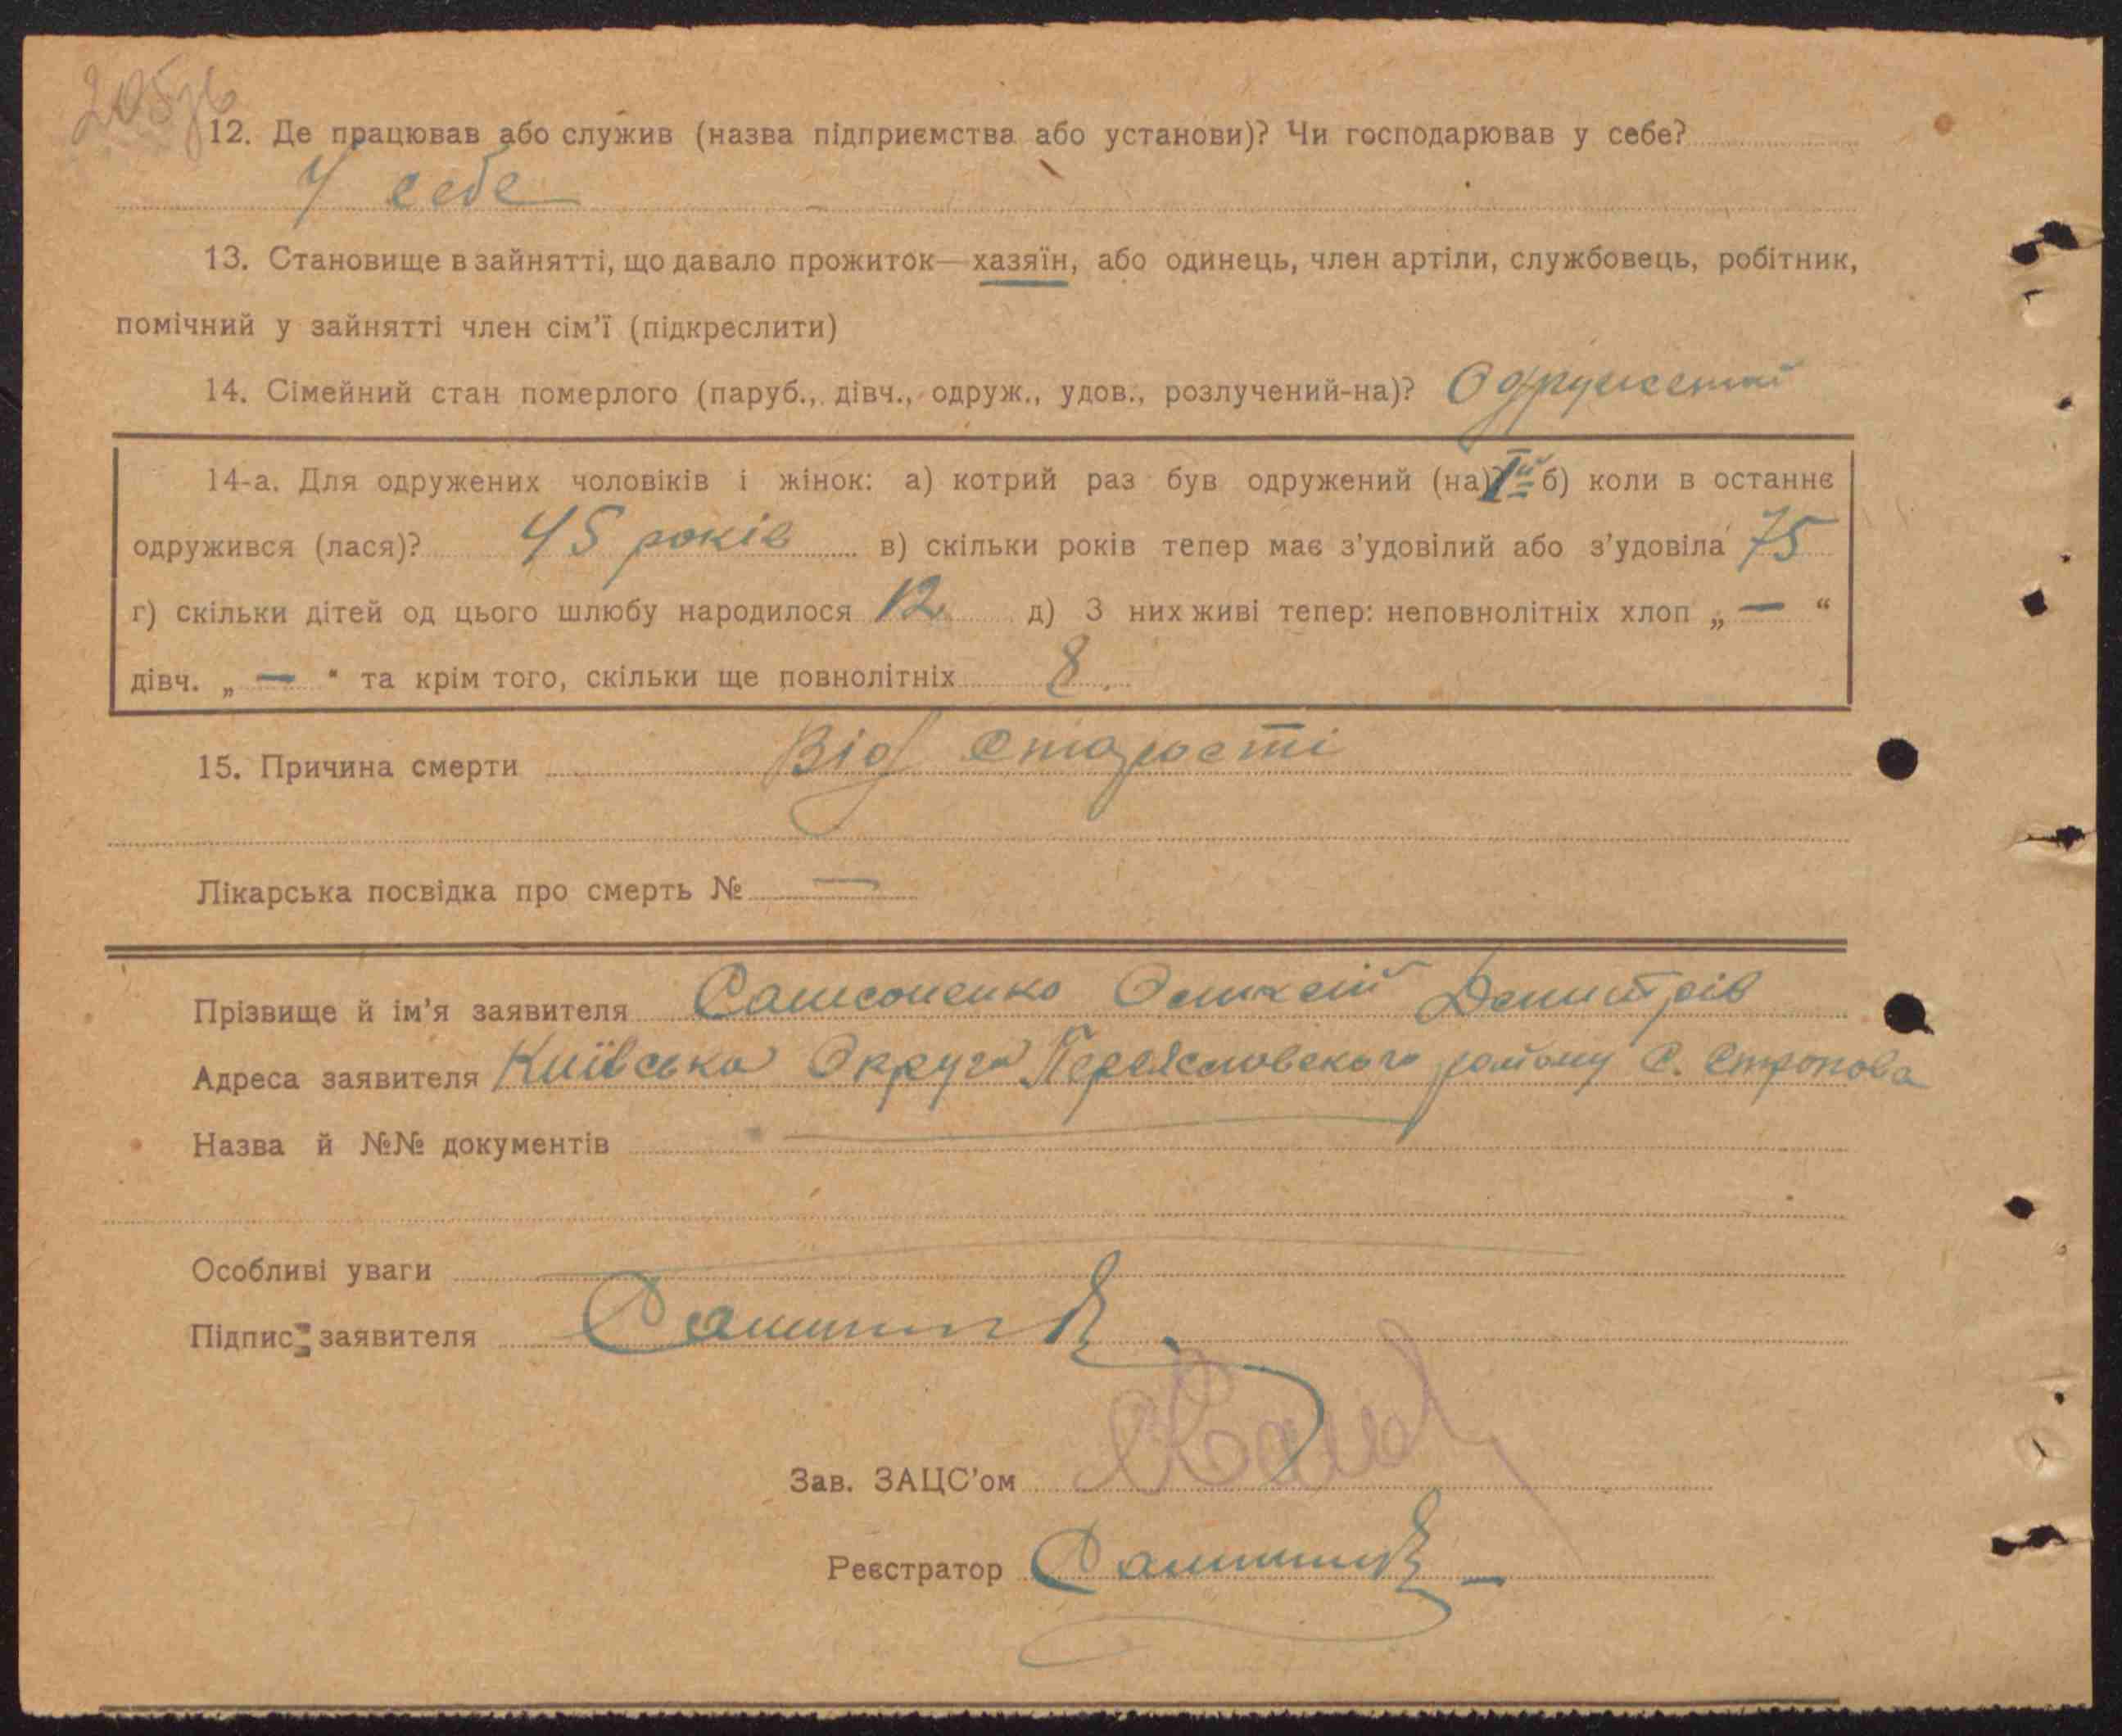 205зв
12. Де працював або служив (назва підприємства або установи)? Чи господарював у себе?
У себе
13. Становище в зайнятті, що давало прожиток—хазяїн, або одинець, член артіли, службовець, робітник,
помічний у зайнятті член сім'ї (підкреслити)
14. Сімейний стан померлого (паруб., дівч., одруж., удов., розлучений-на)? Одружений
14-а. Для одружених чоловіків і жінок: а) котрий раз був одружений (на)? Iй б) коли в останнє
одружився (лася)? 45 років в) скільки років тепер має з'удовілий або з'удовіла 75
г) скільки дітей од цього шлюбу народилося 12 д) З них живі тепер: неповнолітніх хлоп „ — “
дівч. „ — “ та крім того, скільки ще повнолітніх 8.
15. Причина смерти Від старості
Лікарська посвідка про смерть № —
Прізвище й ім'я заявителя Самсоненко Дмитрів
Адреса заявителя Київська Округа Переясловского району С. Строкова
Назва й №№ документів
Особливі уваги
Підпис заявителя
Зав. ЗАЦС'ом
Реєстратор